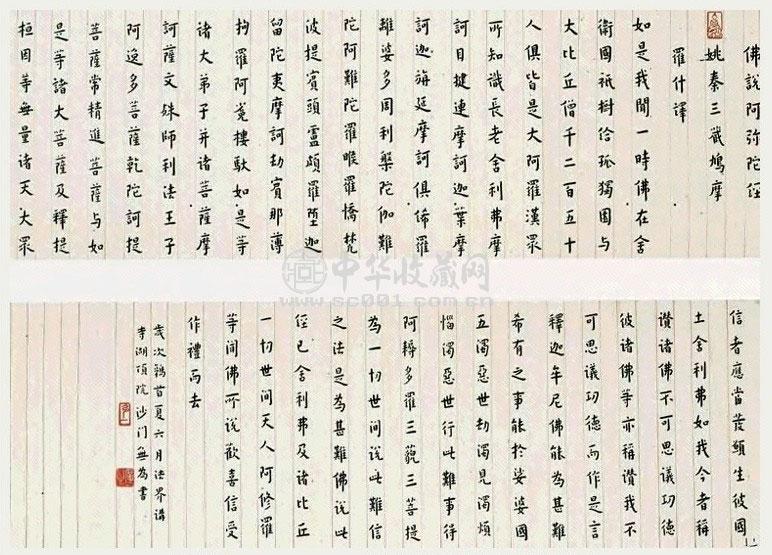 佛說阿弥陀経
姚秦三藏鳩摩
羅什譯
如是我聞一時佛在舍
衛國祇樹給孤獨園与
大比丘僧千二百五十
人俱皆是大阿羅漢眾
所知識長老舍利弗摩
訶目揵連摩訶迦葉摩
訶迦旃延摩訶俱絺羅
離婆多周利槃陀伽難
陀阿難陀羅睺羅憍梵
波提賓頭盧頗羅墮迦
留陀夷摩訶劫賓那薄
拘羅阿㝹樓馱如是等
諸大弟子并諸菩薩摩
訶薩文殊師利法王子
阿逸多菩薩乾陀訶提
菩薩常精進菩薩与如
是等諸大菩薩及釋提
桓因等無量諸天大眾
信者應當發願生彼國
土舍利弗如我今者稱
讚諸佛不可思議功德
彼諸佛等亦稱讚我不
可思議功德而作是言
釋迦牟尼佛能為甚難
希有之事能於娑婆國
五濁惡世劫濁見濁煩
惱濁惡世行此難事得
阿耨多羅三藐三菩提
為一切世间說此難信
之法是為甚難佛說此
経已舍利弗及諸比丘
一切世间天人阿修羅
等闻佛所說歡喜信受
作禮而去
歲次鶉首夏六月法界講
寺湖頂院沙门無為書
中华收藏网
www.sc001.com.cn